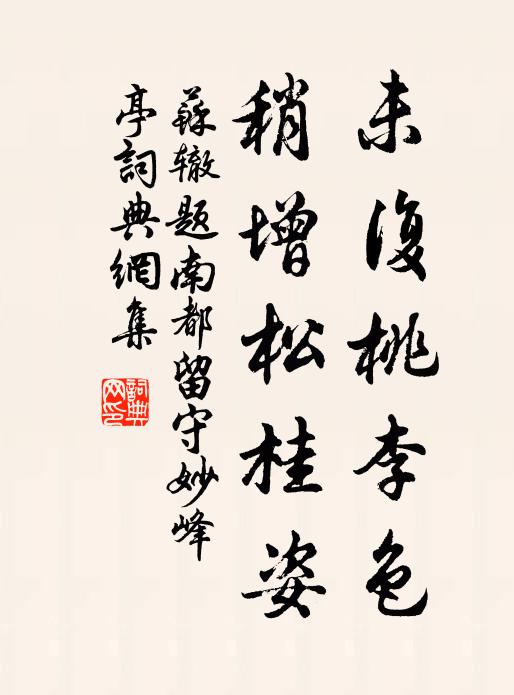 未復桃李色
稍增松桂姿
蘇辙题南都留守妙峰
亭詞典網集
詞典网印